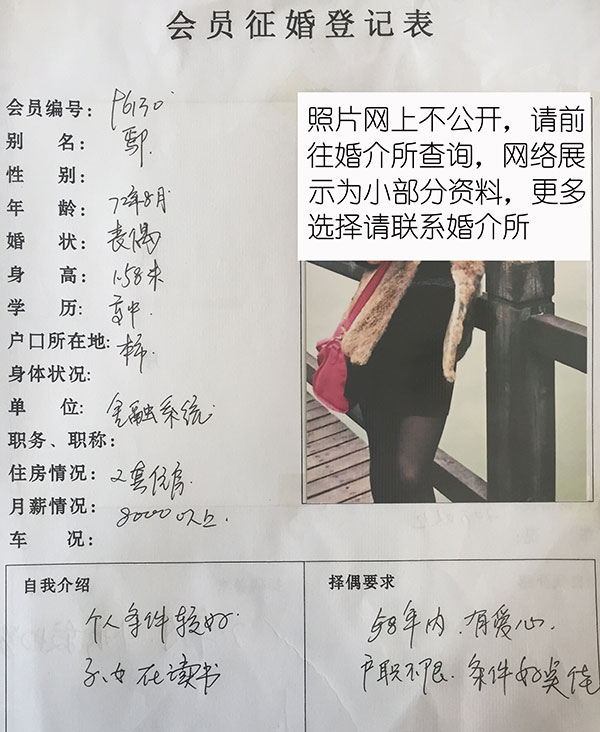 会员征婚登记表
会员编号：P6130
别 名：鄢
性 别：
年 龄：72年8月
婚 状：丧偶
身 高：1.58米
学 历：高中
户口所在地：本市
身体状况：
单 位：金融系统
职务、职称：
住房情况：2套住房
月薪情况：8000以上.
车 况：
照片网上不公开，请前
往婚介所查询，网络展
示为小部分资料，更多
选择请联系婚介所
自我介绍
个人条件较好
子女在读书
择偶要求
58年内.有爱心.
户职不限.条件好更佳